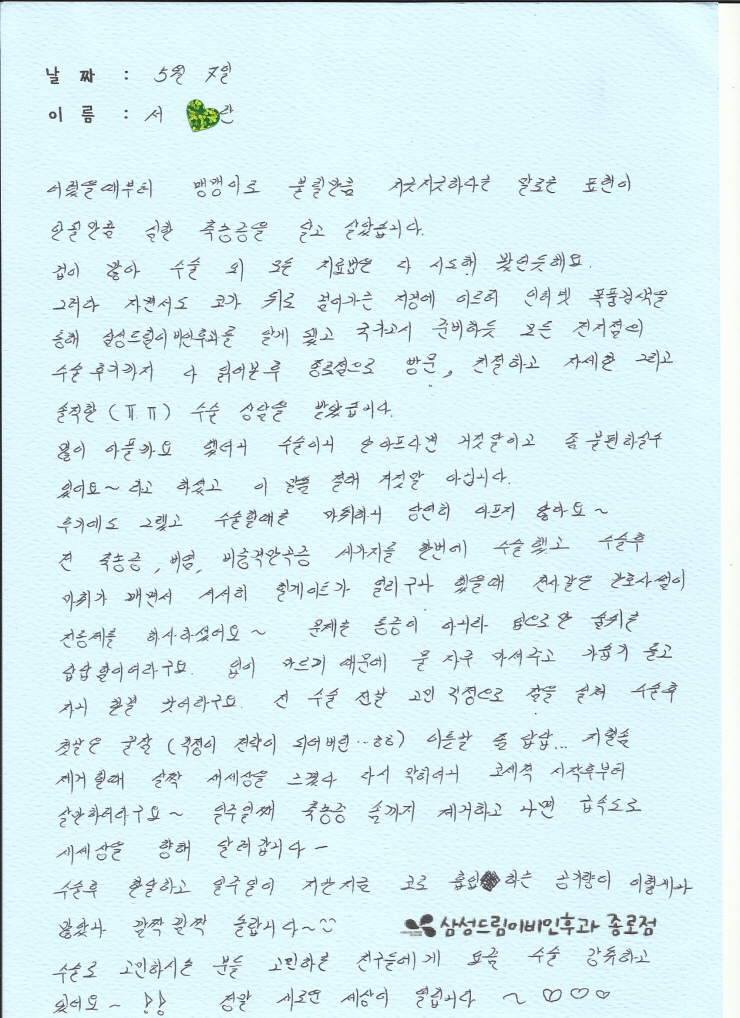 날 짜 : 5월 7일
이 름 : 서 란
어렸을때부터 맹맹이로 불릴만큼 지긋지긋하다는 말로는 표현이
안될만큼 심한 축농증을 앓고 살았습니다.
겁이 많아 수술 외 모든 치료법은 다 시도해 봤던듯해요.
그러다 자면서도 코가 뒤로 넘어가는 지경에 이르러 인터넷 폭풍검색을
통해 삼성드림이비인후과를 알게 됐고 국가고시 준비하듯 모든 전지점의
수술후기까지 다 읽어본후 종로점으로 방문, 친절하고 자세한 그리고
솔직한 (ㅠㅠ) 수술 상담을 받았습니다.
많이 아플까요 했더니 수술이니 안아프다면 거짓말이고 좀 불편하실수
있어요~ 라고 하셨고 이 말은 절대 거짓말 아닙니다.
후기에도 그렇고 수술할때는 마취하니 당연히 아프지 않아요~
전 축농증, 비염, 비중격만곡증 세가지를 한번에 수술했고 수술후
마취가 깨면서 서서히 헬게이트가 열리구나 했을때 천사같은 간호사쌤이
진통제를 놔주셨어요~ 문제는 통증이 아니라 입으로만 숨쉬는
답답함이더라구요. 입이 마르기 때문에 물 자주 마셔주고 가습기 틀고
자니 한결 낫더라구요. 전 수술 전날 고민 걱정으로 잠을 설쳐 수술후
첫날은 꿀잠 (걱정이 전략이 되어버린..ㅎㅎ) 이튿날 좀 답답... 지혈솜
제거할때 살짝 새세상을 느꼈다 다시 막히더니 코세척 시작후부터
살만하더라구요~ 일주일째 축농증 솜까지 제거하고 나면 급속도로
새세상을 향해 달려갑니다-
수술후 한달하고 일주일이 지난지금 코로 흡입 하는 공기량이 이렇게나
많았나 깜짝깜짝 놀랍니다~
삼성드림이비인후과 종로점
수술로 고민하시는 분들 고민하는 친구들에게 요즘 수술 강추하고
있어요~!! 정말 새로운 세상이 열립니다 ~ ♡♡♡